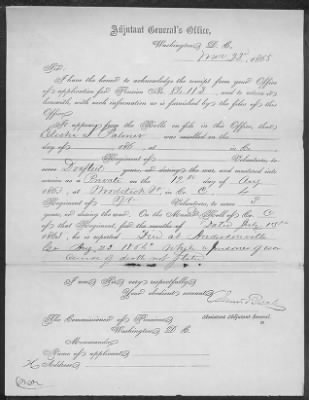 Adjutant General's Office,
Washington, D. C.
Nov 28th, 1865
Sir:
I have the honor to acknowledge the receipt from your Office
of application for Pension No. 
herewith, with such information as is furnished by the files of this
Office.
It appears from the Rolls on file in this Office, that
Palmer was enrolled on the
day of 186 , at in Co.
Regiment of Volunteers, to
serve Drafted years, or during the war, and mustered into
service as a Private on the 12th day of Aug
1863, at Woodstock Vt, in Co. C, 4
Regiment of Vt Volunteers, to serve 3
years, or during the war. On the Muster Roll of Co. C
of that Regiment, for the months of Dated July
186 , he is reported Died at Andersonville
Ga Aug 22 1864 while a prisoner of war
Cause of death not stated
I am, Sir, very respectfully,
Your obedient servant,
Assistant Adjutant General.
The Commissioner of Pensions,
Washington, D. C.
Memoranda:
Name of applicant,
Address,